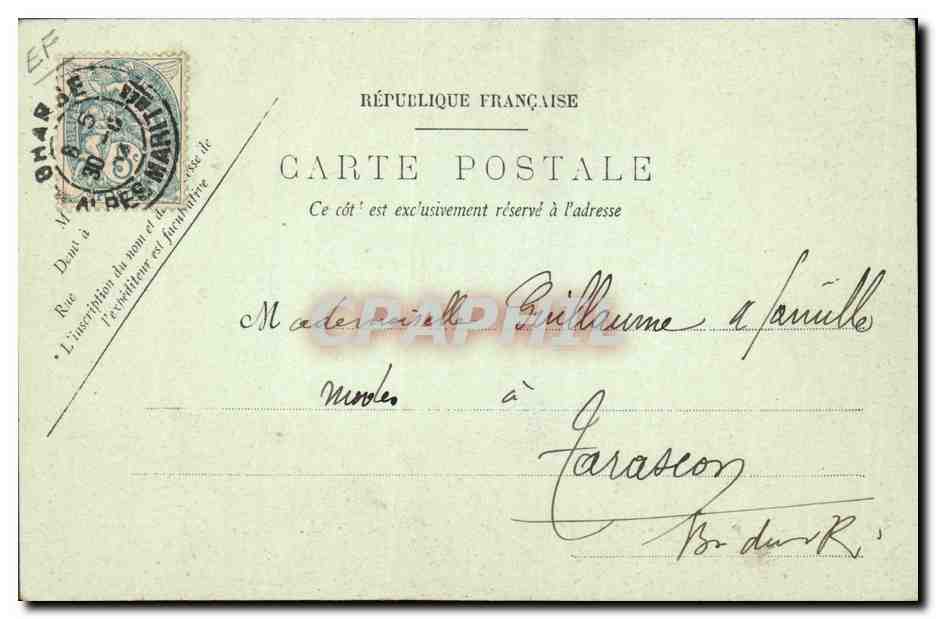 EF
RÉPUBLIQUE FRANÇAISE
CARTE POSTALE
Ce côté est exclusivement réservé à l'adresse
ALPES MARITMES
8 5
30
M
Domt à
Rue
* L'inscription du nom et de l'adresse de
l'expéditeur est facultative
CPAPHIL
Mademoiselle Guillaume a famille
modes à
Tarascon
B du R